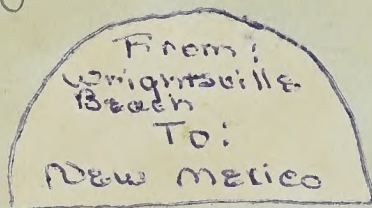 From:
Wrightsville
Beach
To:
New Mexico